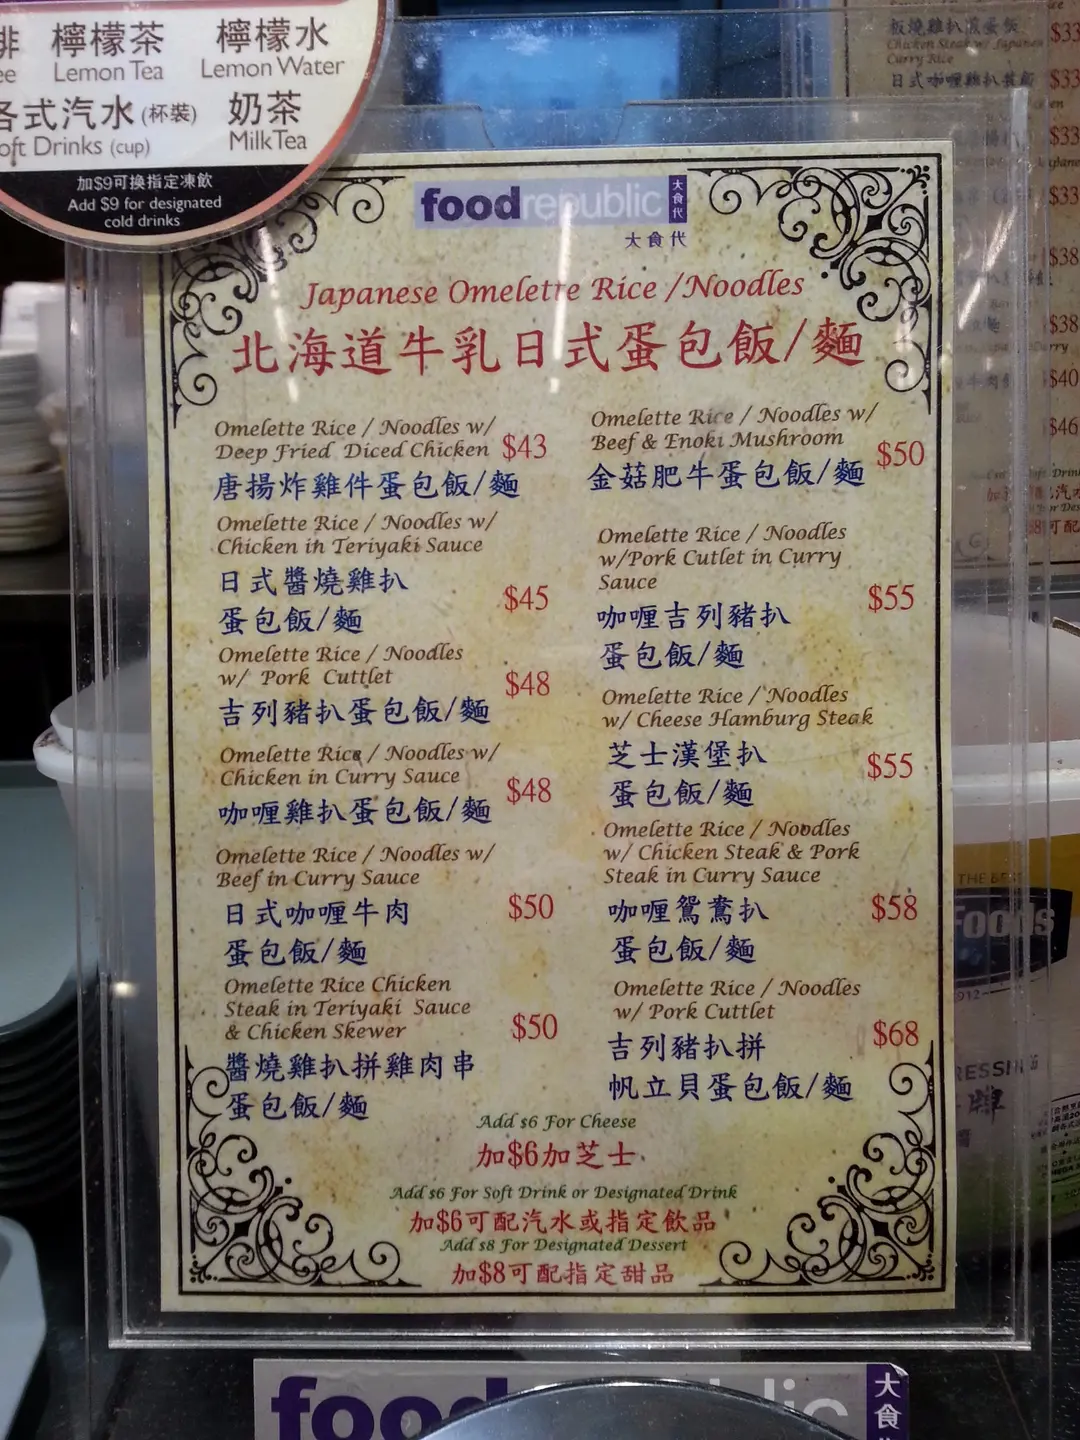 檸檬茶
檸檬水
Lemon Tea
Lemon Water
各式汽水 (杯裝)
奶茶
Drinks (cup)
Milk Tea
加$9可換指定凍飲
Add $9 for designated
cold drinks
foodrepublic 大食代
大食代
Japanese Omelette Rice /Noodles
北海道牛乳日式蛋包飯/麵
Omelette Rice / Noodles w/
Deep Fried Diced Chicken $43
唐揚炸雞件蛋包飯/麵
Omelette Rice / Noodles w/
Chicken in Teriyaki Sauce
日式醬燒雞扒
$45
蛋包飯/麵
Omelette Rice / Noodles
w/ Pork Cuttlet
$48
吉列豬扒蛋包飯/麵
Omelette Rice / Noodles w/
Chicken in Curry Sauce
$48
咖喱雞扒蛋包飯/麵
Omelette Rice / Noodles w/
Beef in Curry Sauce
日式咖喱牛肉
$50
蛋包飯/麵
Omelette Rice Chicken
Steak in Teriyaki Sauce
& Chicken Skewer
$50
醬燒雞扒拼雞肉串
蛋包飯/麵
Omelette Rice / Noodles w/
Beef & Enoki Mushroom
$50
金菇肥牛蛋包飯/麵
Omelette Rice / Noodles
w/Pork Cutlet in Curry
Sauce
$55
咖喱吉列豬扒
蛋包飯/麵
Omelette Rice / Noodles
w/ Cheese Hamburg Steak
芝士漢堡扒
$55
蛋包飯/麵
Omelette Rice / Noodles
w/ Chicken Steak & Pork
Steak in Curry Sauce
咖喱鴛鴦扒
$58
蛋包飯/麵
Omelette Rice / Noodles
w/Pork Cuttlet
$68
吉列豬扒拼
帆立貝蛋包飯/麵
Add $6 For Cheese
加$6加芝士
Add $6 For Soft Drink or Designated Drink
加$6可配汽水或指定飲品
Add $8 For Designated Dessert
加$8可配指定甜品
food
大食
板燒雞扒滾蛋飯
$33
Chicken Steak w/ Japanese
Curry Rice
日式咖喱雞扒
$33
$33
$33
$38
$38
$40
$46
THE BE
Foods